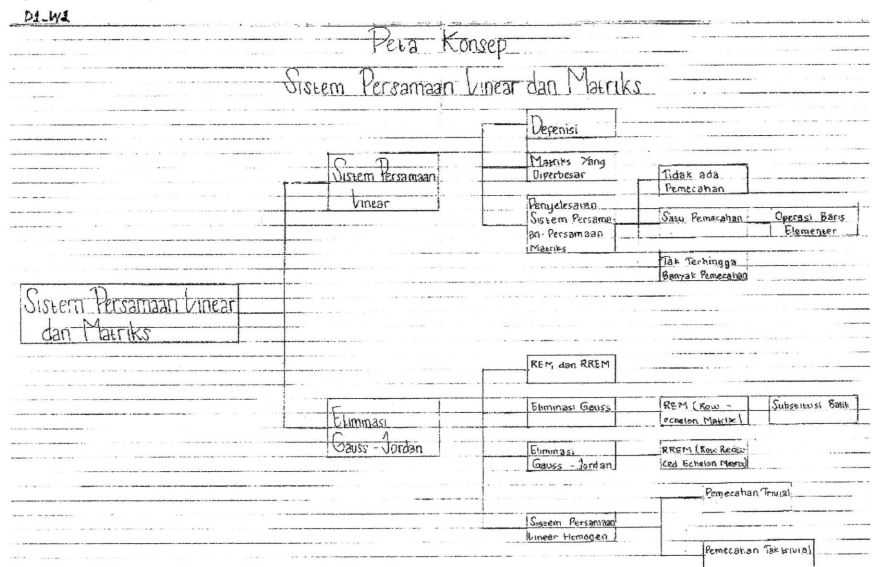 D1_W2
Peta Konsep
Sistem Persamaan Linear dan Matriks
Defenisi
Sistem Persamaan
Linear
Matriks Yang
Diperbesar
Penyelesaian
Sistem Persama-
an-Persamaan
Matriks
Tidak ada
Pemecahan
Satu Pemecahan
Operasi Baris
Elementer
Tak Terhingga
Banyak Pemecahan
Sistem Persamaan Linear
dan Matriks
REM dan RREM
Eliminasi
Gauss-Jordan
Eliminasi Gauss
REM (Row-
echelon Matrix)
Substitusi Balik
Eliminasi
Gauss-Jordan
RREM (Row Redu-
ced Echelon Matrix)
Sistem Persamaan
Linear Homogen
Pemecahan Trivial
Pemecahan Tak trivial